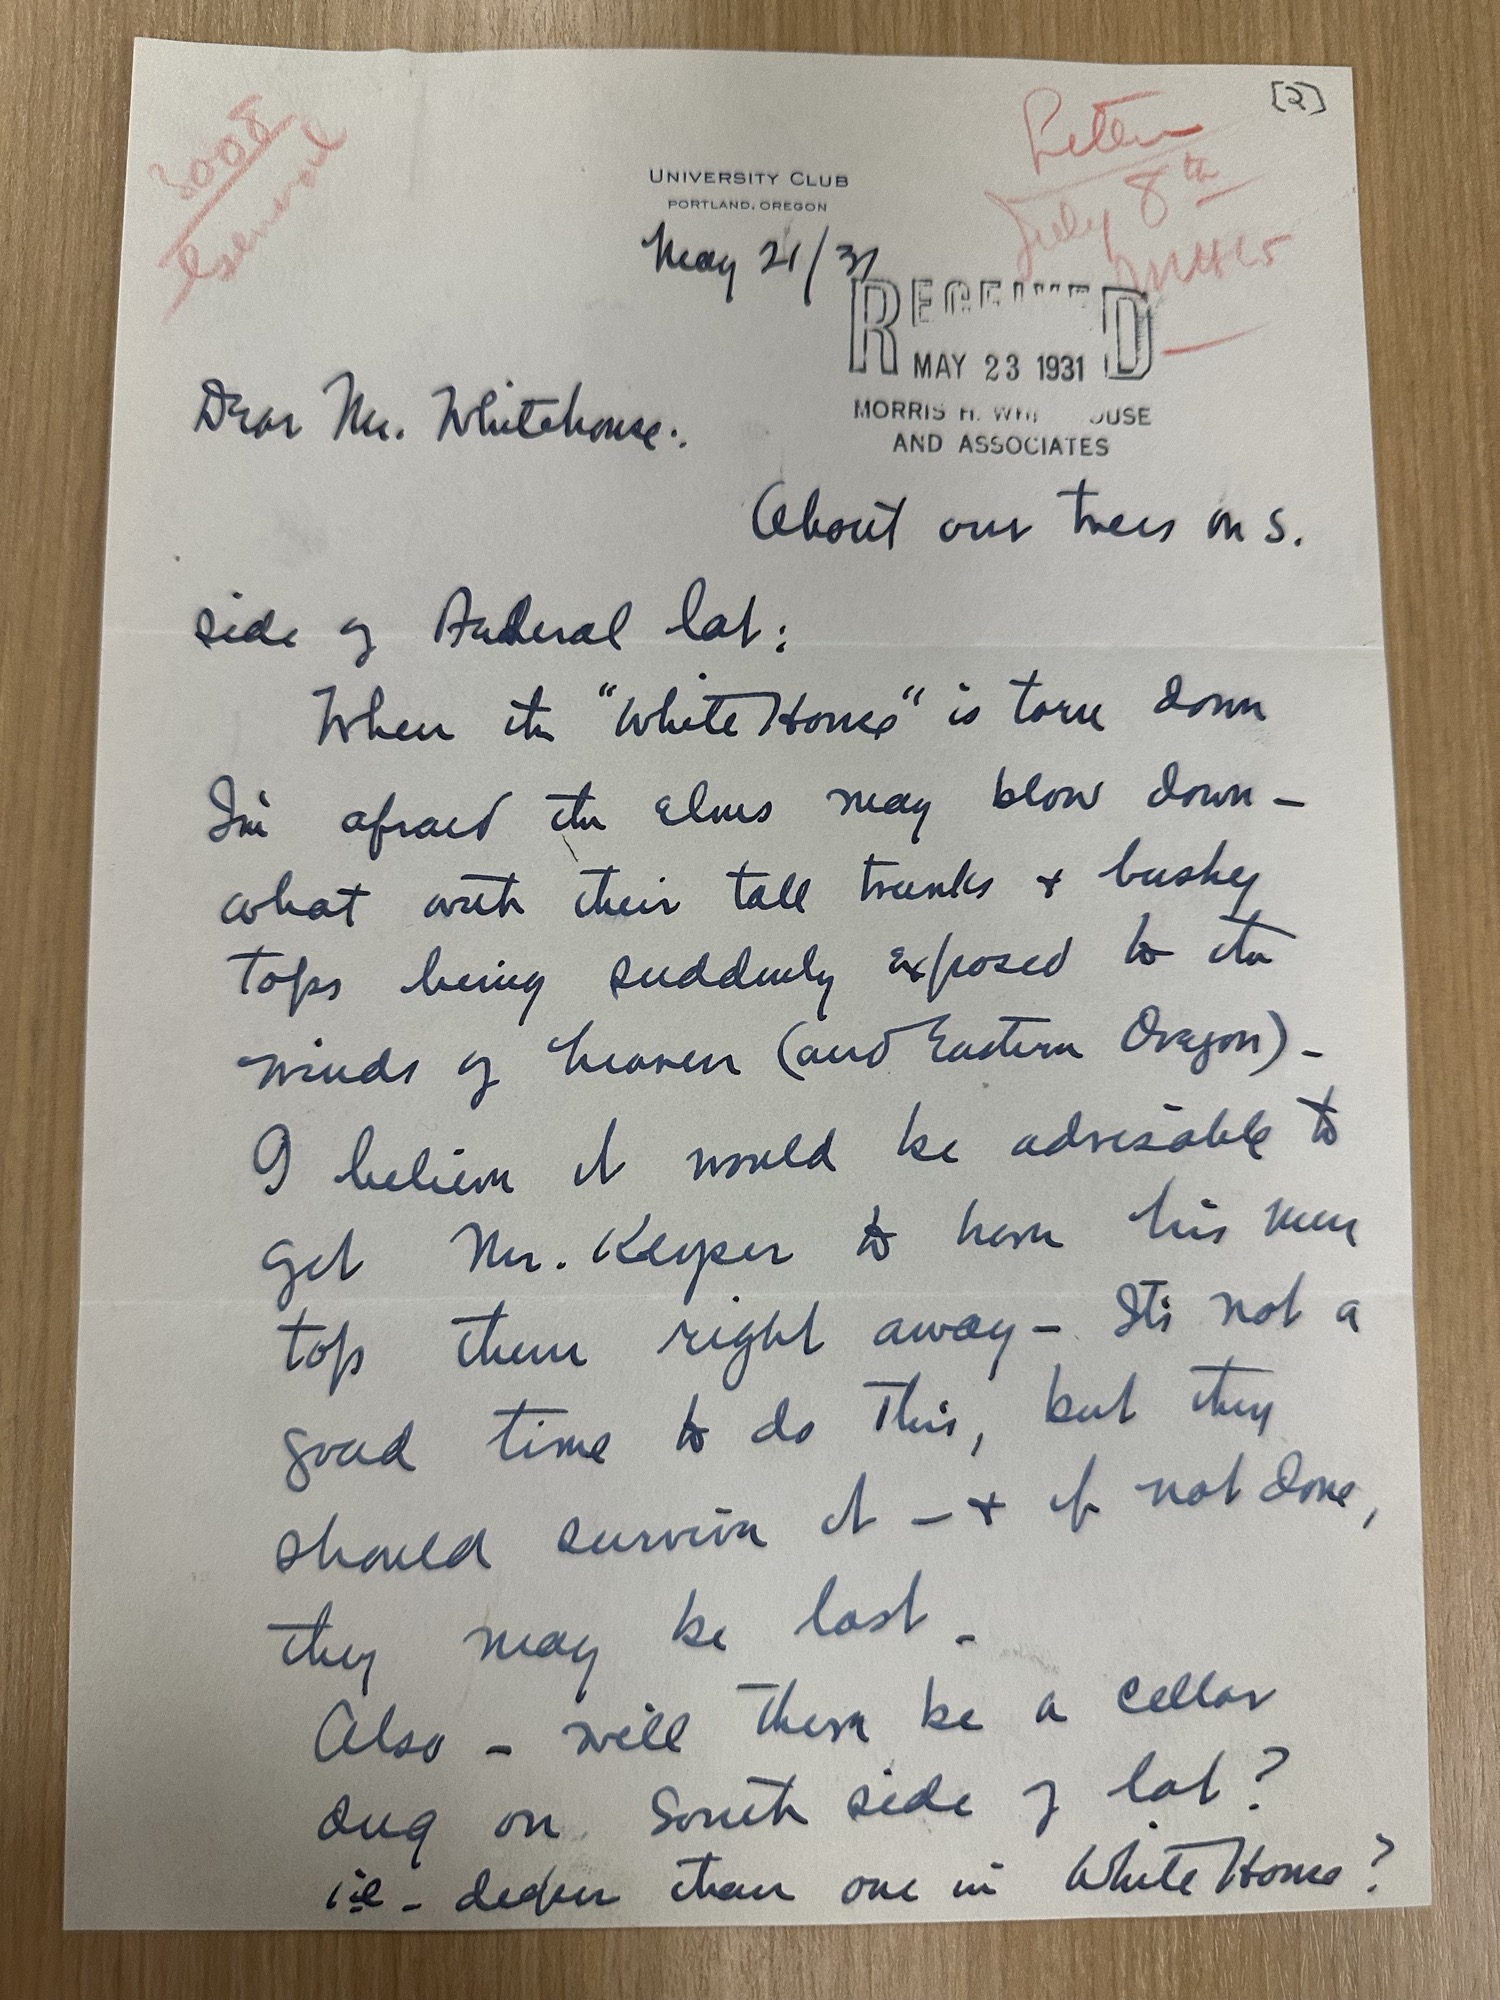 [2]
3008
General
Letter
July 8th
UNIVERSITY CLUB
PORTLAND, OREGON
May 21/31
RECEIVED
MAY 23 1931
MORRIS H. WHI OUSE
AND ASSOCIATES
Dear Mr. Whitehouse:
About our trees on S.
side of Federal lot:
When the "White House" is torn down
I'm afraid the Elms may blow down -
what with their tall trunks + bushey
tops being suddenly exposed to the
winds of heaven (and Eastern Oregon) -
I believe it would be advisable to
get Mr. Keyper to have his men
top them right away - Its not a
good time to do this, but they
should survive it - + if not done,
they may be lost -
Also - will there be a cellar
dug on South side of lot?
i.e - deeper than one in White House?